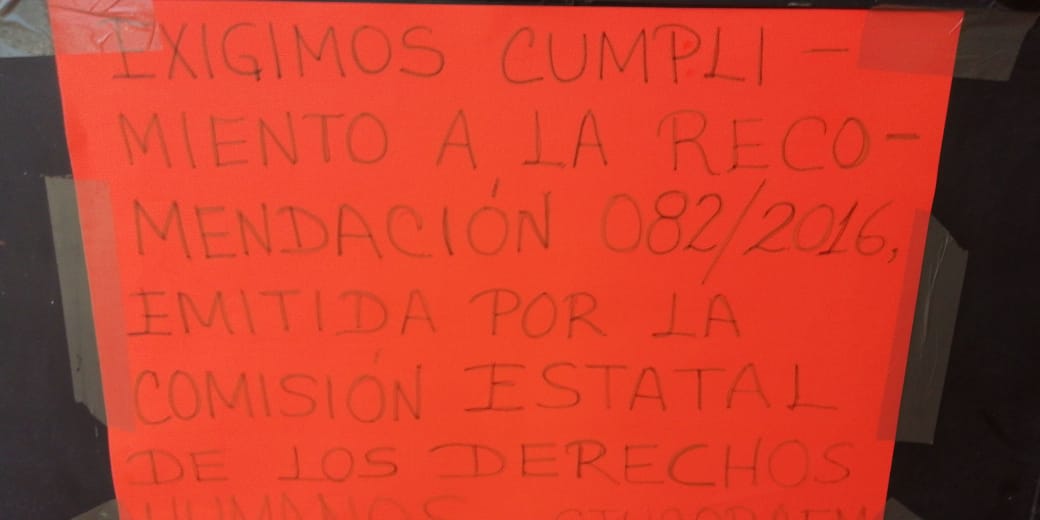 EXIGIMOS CUMPLI -
MIENTO A LA RECO-
MENDACIÓN 082/2016,
EMITIDA POR LA
COMISIÓN ESTATAL
DE LOS DERECHOS
HUMANOS